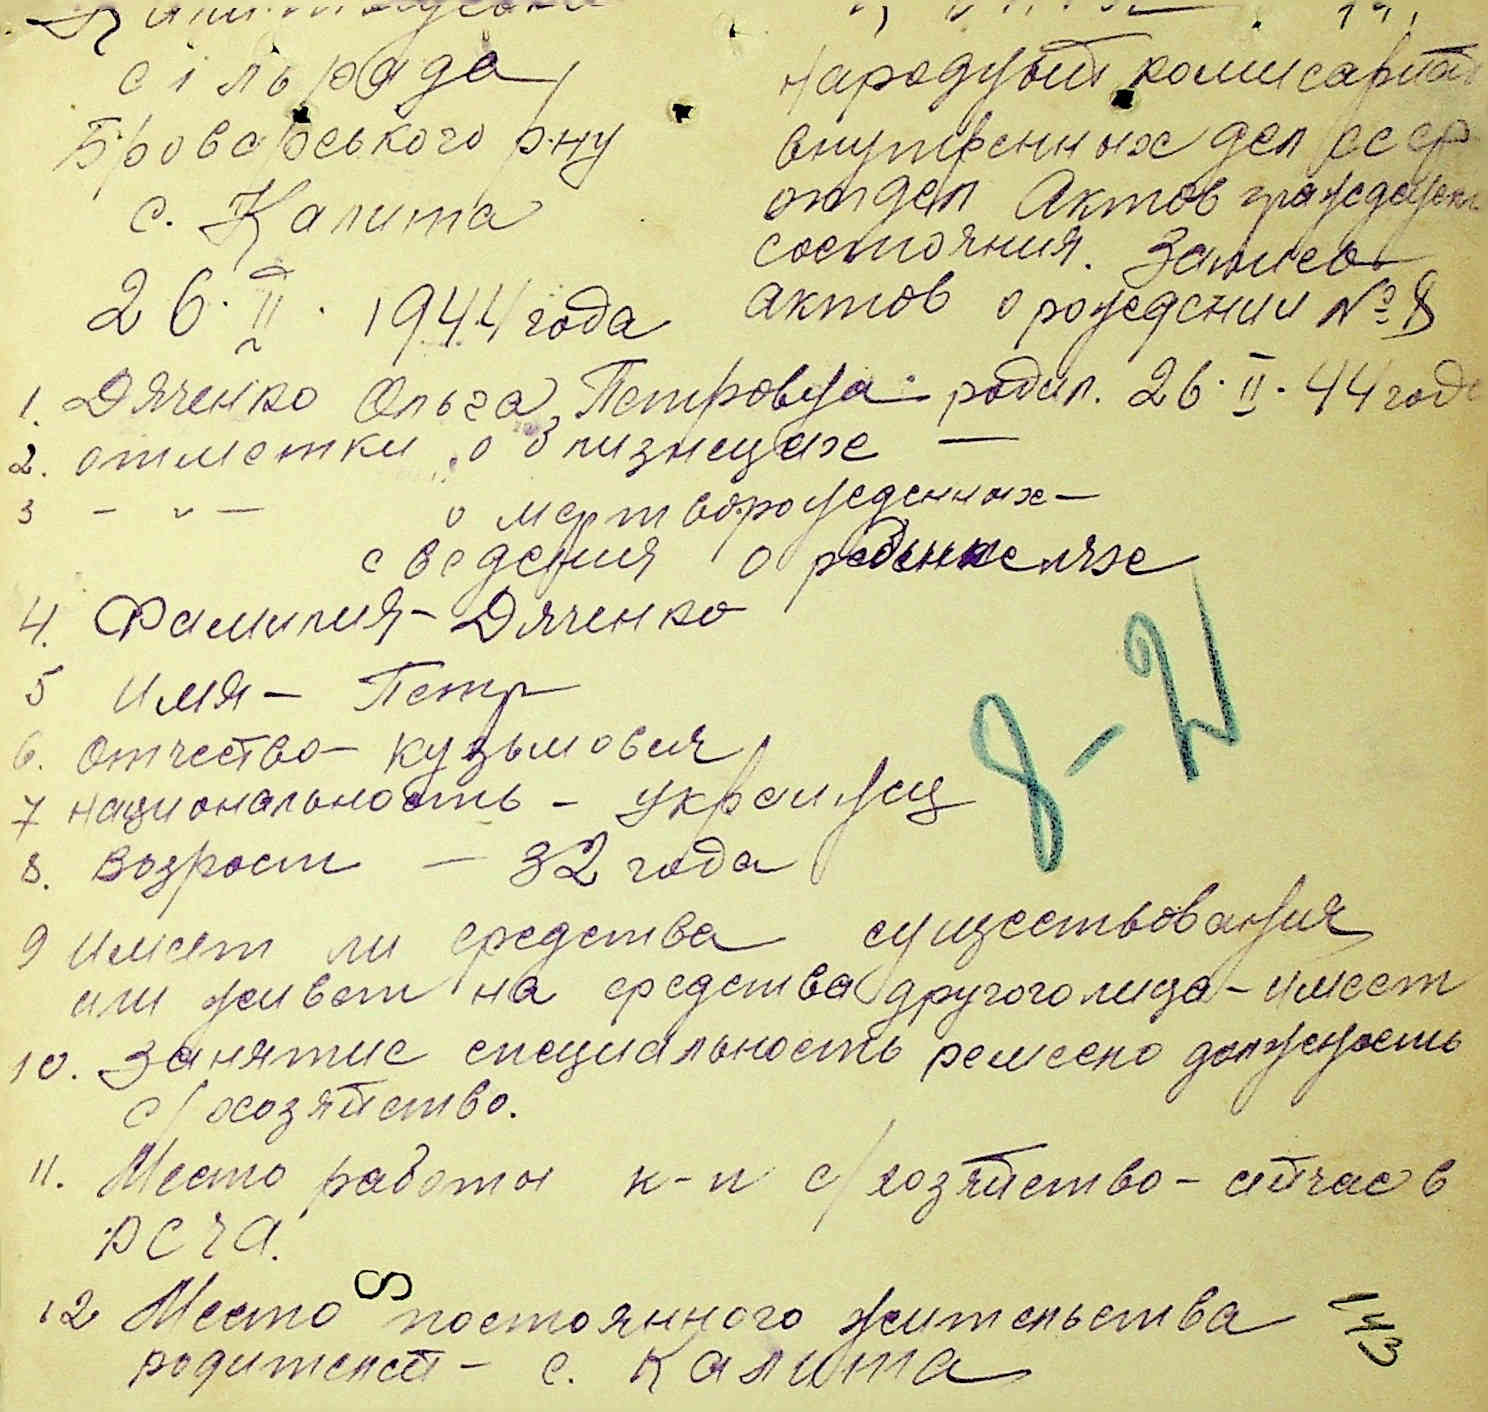 сільрада
Броварського р-ну
с. Калита
26. II. 1944 года
Народный комисариат
внутренних дел СССР
отдел Актов гражданск
состояния. Запись
актов о рождении № 8
1. Дяченко Ольга Петровна - родил. 26. II. 44 года
2. отметки о близнецах —
3 — " — о мертворожденных —
сведения о
4. Фамилия - Дяченко
5 имя - Петр
6. отчество - Кузьмович
7 национальность - украинец
8. возраст - 32 года
9 имеет ли средства существования
или живет на средства другого лица - имеет
10. Занятие специальность ремесло должность
с/хозяйство.
11. Место работы к-п с/хозяйство - сичас в
РСЧА.
12 Место постоянного жительства
родителей - с. Калита
8 - 21
143